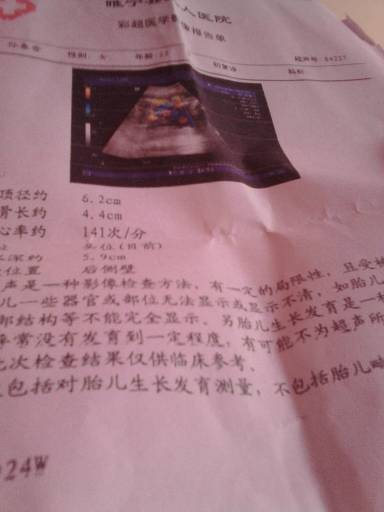 人民医院
彩超医学影像报告单
性别: 女 年龄:
超声号: 84227
顶径约 6.2cm
骨长约 4.4cm
心率约 141次/分
位 头位(目前)
水深约 5.9cm
位置 后侧壁
声是一种影像检查方法,有一定的局限性,且受被
儿一些器官或部位无法显示或显示不清,如胎儿
部结构等不能完全显示。另胎儿生长发育是一
异常没有发育到一定程度,有可能不为超声所
此次检查结果仅供临床参考。
包括对胎儿生长发育测量,不包括胎儿畸
24W